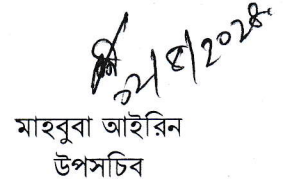 ০২/৪/২০২৪
মাহবুবা আইরিন
উপসচিব